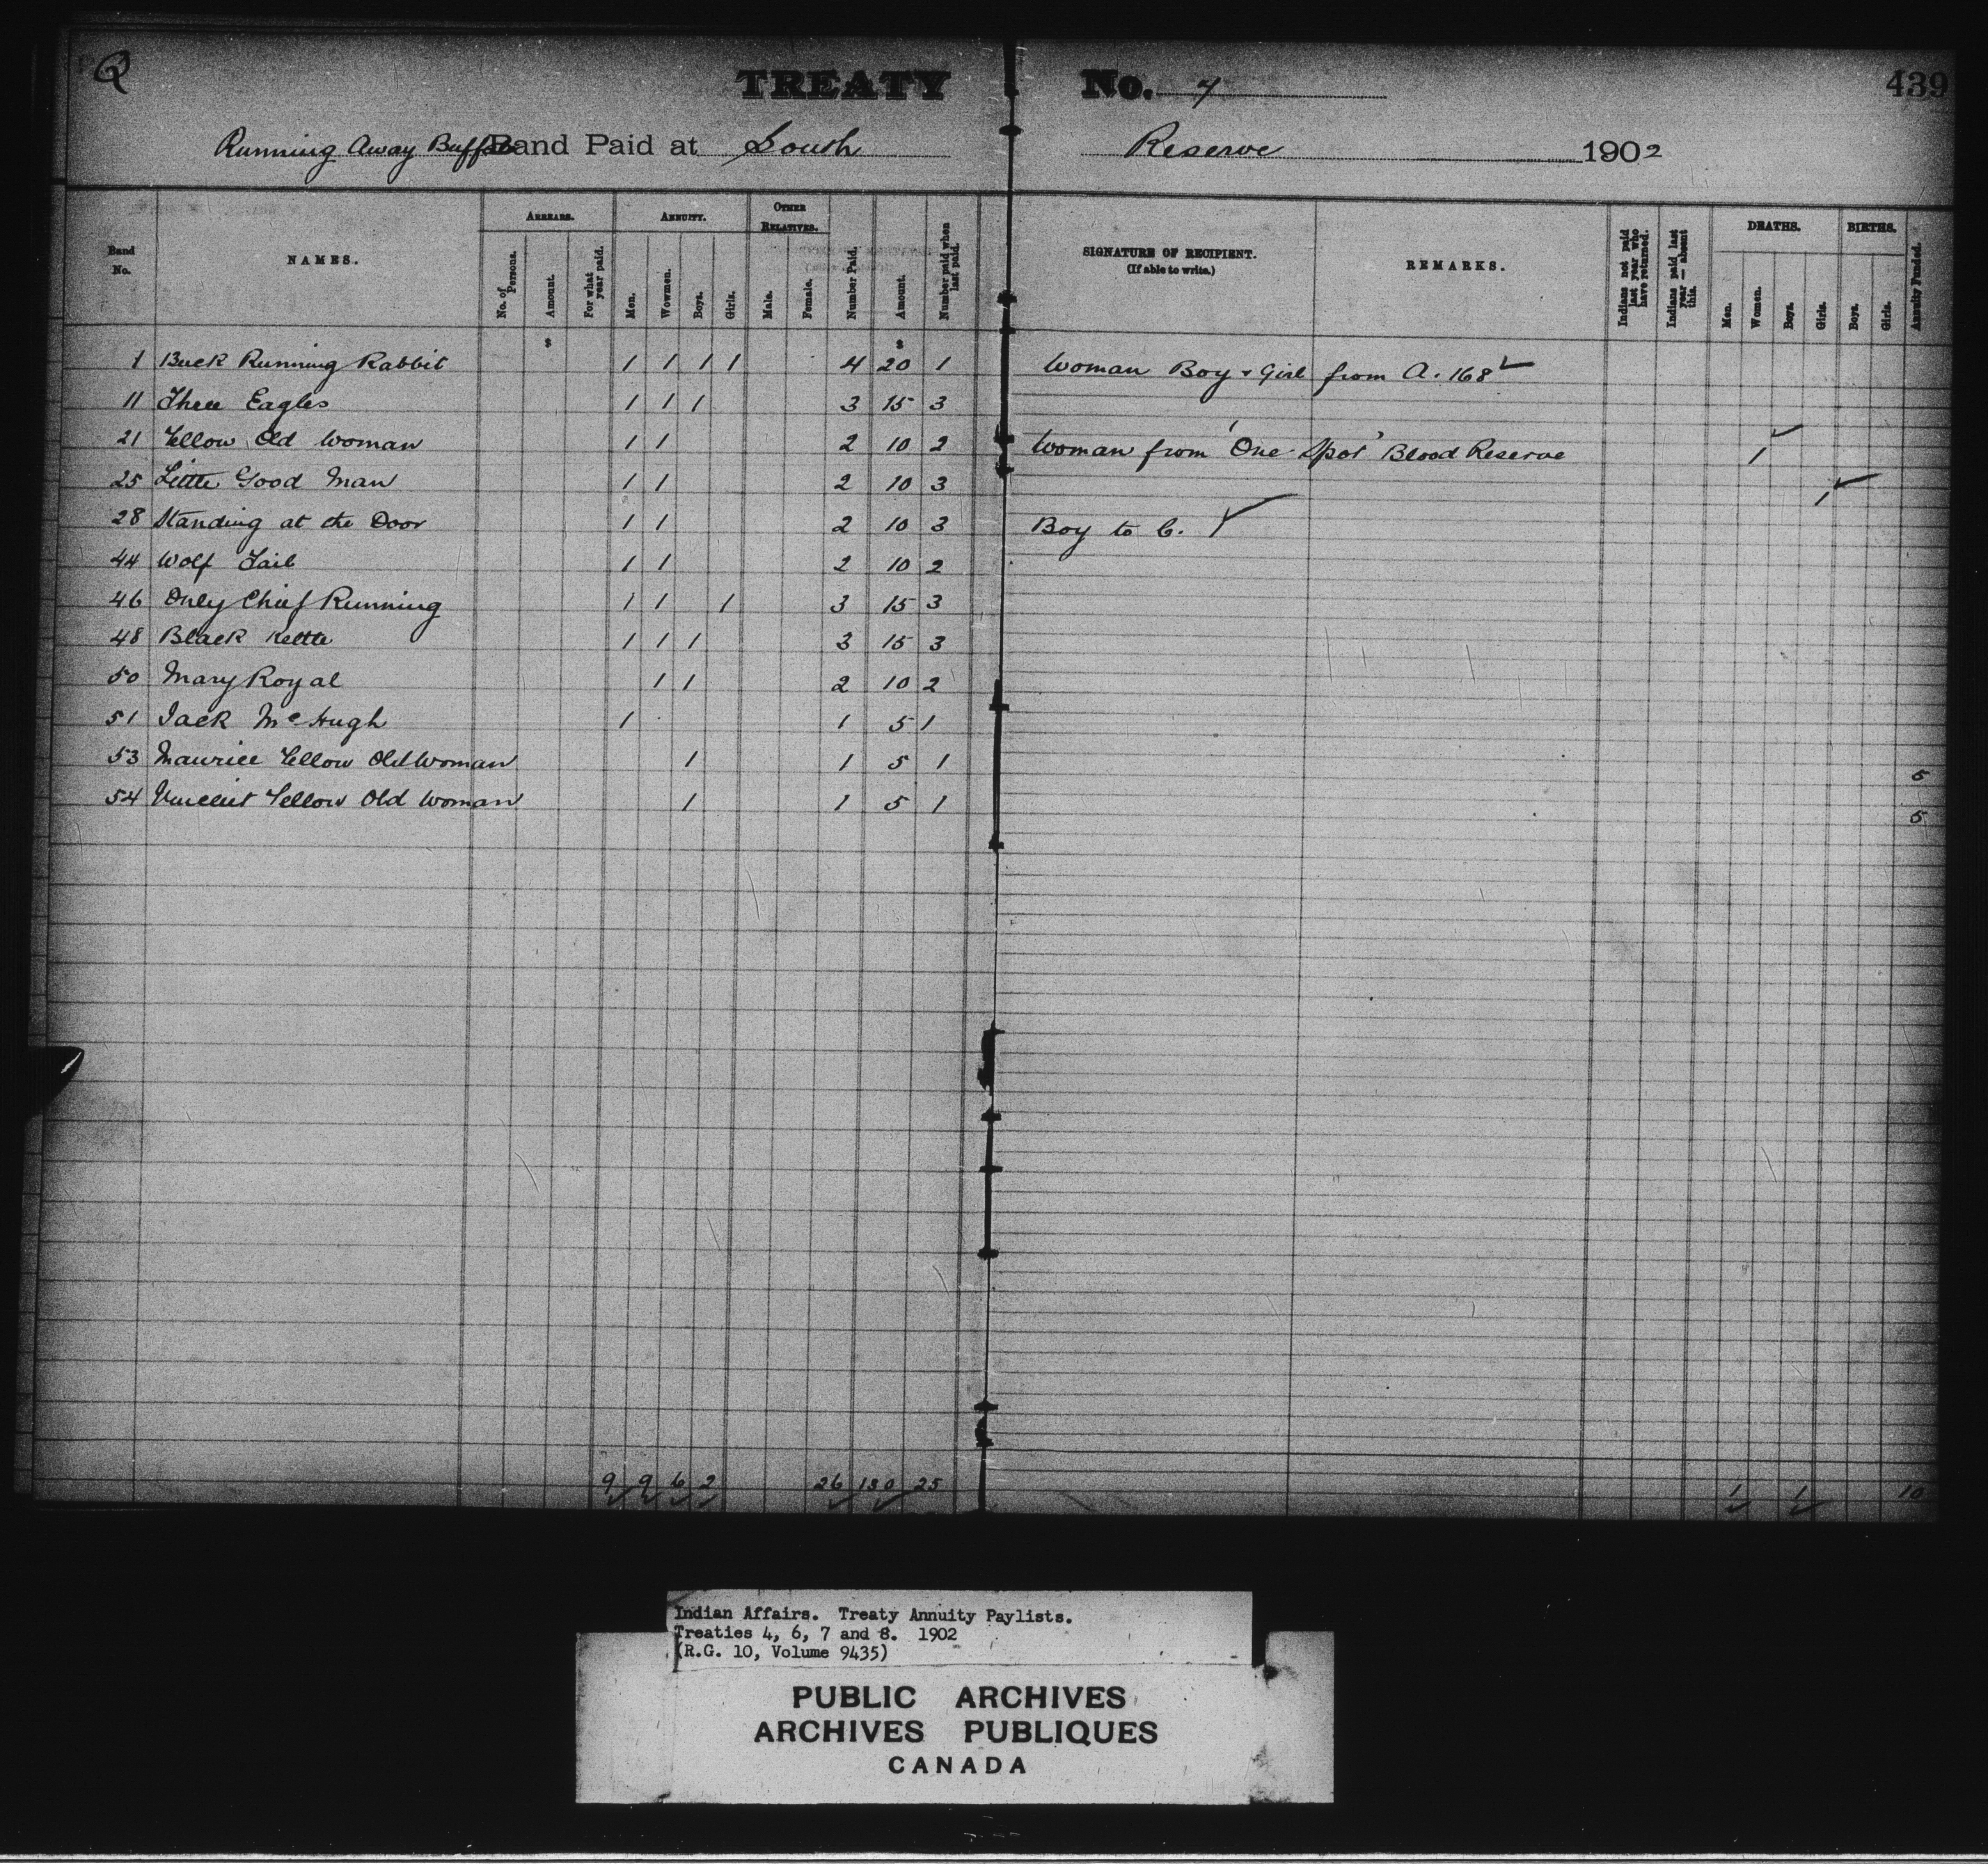 Q
TREATY No. 7 439
Running Away Buffalo Band Paid at South Reserve 1902
Band No.
NAMES.
ARREARS.
No. of Persons.
Amount.
For what year paid.
ANNUITY.
Men.
Wowmen.
Boys.
Girls.
OTHER RELATIVES.
Male.
Female.
Number Paid.
Amount.
Number paid when last paid.
SIGNATURE OF RECIPIENT.
(If able to write.)
REMARKS.
Indians not paid last year who have returned.
Indians paid last year — absent this.
DEATHS.
Men.
Women.
Boys.
Girls.
BIRTHS.
Boys.
Girls.
Annuity Funded.
$ $
1 Buck Running Rabbit 1 1 1 1 4 20 1 Woman Boy & Girl from A. 168 ✓
11 Three Eagles 1 1 1 3 15 3
21 Yellow Old Woman 1 1 2 10 2 Woman from 'One Spot' Blood Reserve 1 ✓
25 Little Good Man 1 1 2 10 3 1 ✓
28 Standing at the Door 1 1 2 10 3 Boy to C. ✓
44 Wolf Tail 1 1 2 10 2
46 Only Chief Running 1 1 1 3 15 3
48 Black Kettle 1 1 1 3 15 3
50 Mary Royal 1 1 2 10 2
51 Jack McHugh 1 1 5 1
53 Maurice Yellow Old Woman 1 1 5 1 5
54 Vincent Yellow Old Woman 1 1 5 1 5
9 9 6 2 26 130 25 1 1 10
Indian Affairs. Treaty Annuity Paylists.
Treaties 4, 6, 7 and 8. 1902
(R.G. 10, Volume 9435)
PUBLIC ARCHIVES
ARCHIVES PUBLIQUES
CANADA